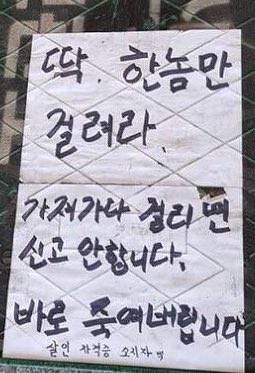 딱. 한놈만
걸려라.
가저가다 걸리면
신고 안합니다.
바로 죽여버립니다
살인 자격증 소지자 백